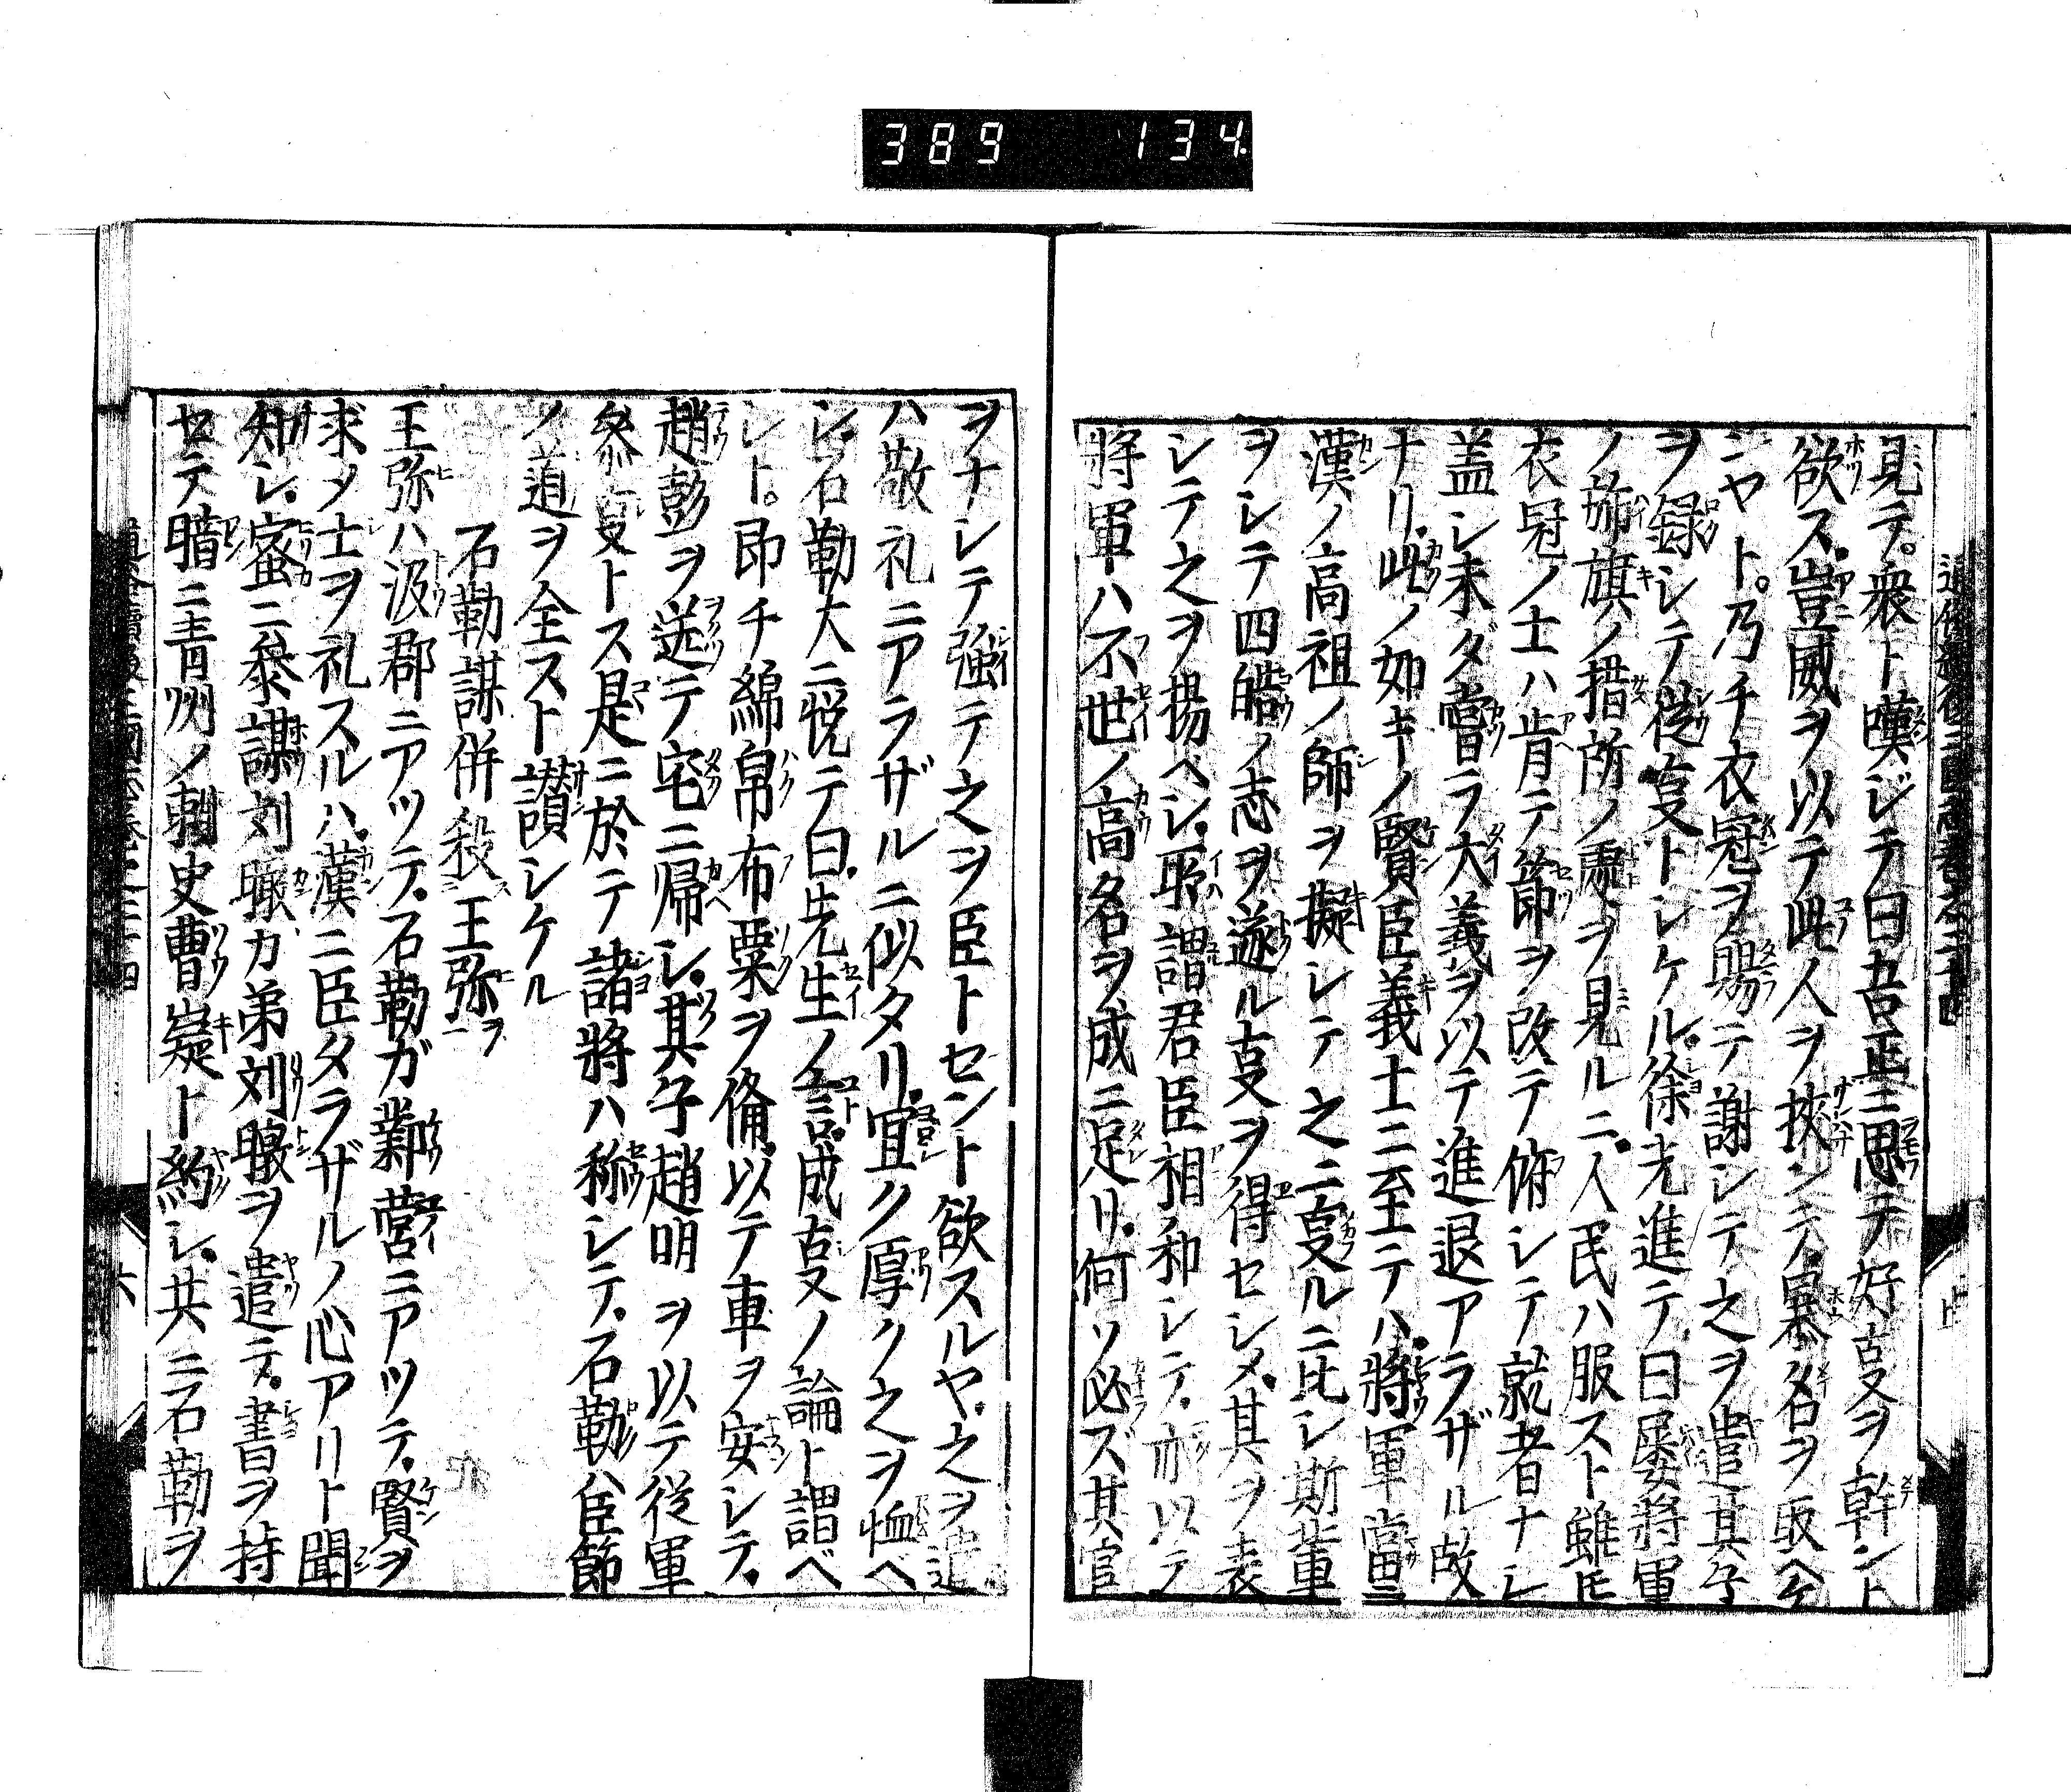 389 134
見テ。衆ト嘆ジテ曰吾正ニ思テ好叓ヲ幹ント
欲ス。豈威ヲ以テ此人ヲ挾ンテ。暴名ヲ取ヘケ
ンヤト。乃チ衣冠ヲ賜テ謝シテ之ヲ遣其子
ヲ録シテ從叓トシケル。徐光進テ曰屡將軍
ノ旆旗ノ措所ノ處ヲ見ルニ。人民ハ服スト雖𪜈
衣冠ノ士ハ肯テ節ヲ改テ俯シテ就者ナシ
盖シ未ダ嘗ラ大義ヲ以テ進退アラザル故
ナリ。此ノ如キノ賢臣義士ニ至テハ。將軍當ニ
漢ノ高祖ノ師ヲ擬シテ之ニ叓ルニ比シ斯輩
ヲシテ四皓ノ志ヲ遂ル叓ヲ得セシメ。其ヲ表
シテ之ヲ揚ベシ。所謂君臣相和シテ。亦以テ
將軍ハ不世ノ高名ヲ成ニ足リ。何ソ必ズ其官
ヲナシテ強テ之ヲ臣トセント欲スルヤ。之ヲ遣
ハ敬礼ニアラザルニ似タリ。宜ク厚ク之ヲ恤ベ
シ。石勒大ニ悦テ曰。先生ノ言。成叓ノ論ト謂ベ
シト。即チ綿帛布粟ヲ俻。以テ車ヲ安シテ。
趙彭ヲ送テ宅ニ帰シ。其子趙明ヲ以テ従軍
叅叓トス是ニ於テ諸將ハ称シテ。石勒ハ臣節
ノ道ヲ全スト讃シケル
石勒謀併殺王弥ヲ
王弥ハ汲郡ニアツテ。石勒ガ鄴營ニアツテ。賢ヲ
求メ士ヲ礼スルハ。漢ニ臣タラザルノ心アリト聞
知シ。蜜ニ叅謀刘暾カ弟刘暾ヲ遣テ。書ヲ持
セテ暗ニ青州ノ刺史曹嶷ト約シ。共ニ石勒ヲ
六